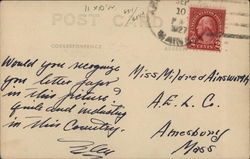 POST CARD
CORRESPONDENCE
Would you recognize
you letter paper
in this picture?
quite and industry
in this Country.
Miss Mildred Ainsworth
A. E. L. Co.
Amesbury
Mass
2 CENTS 2